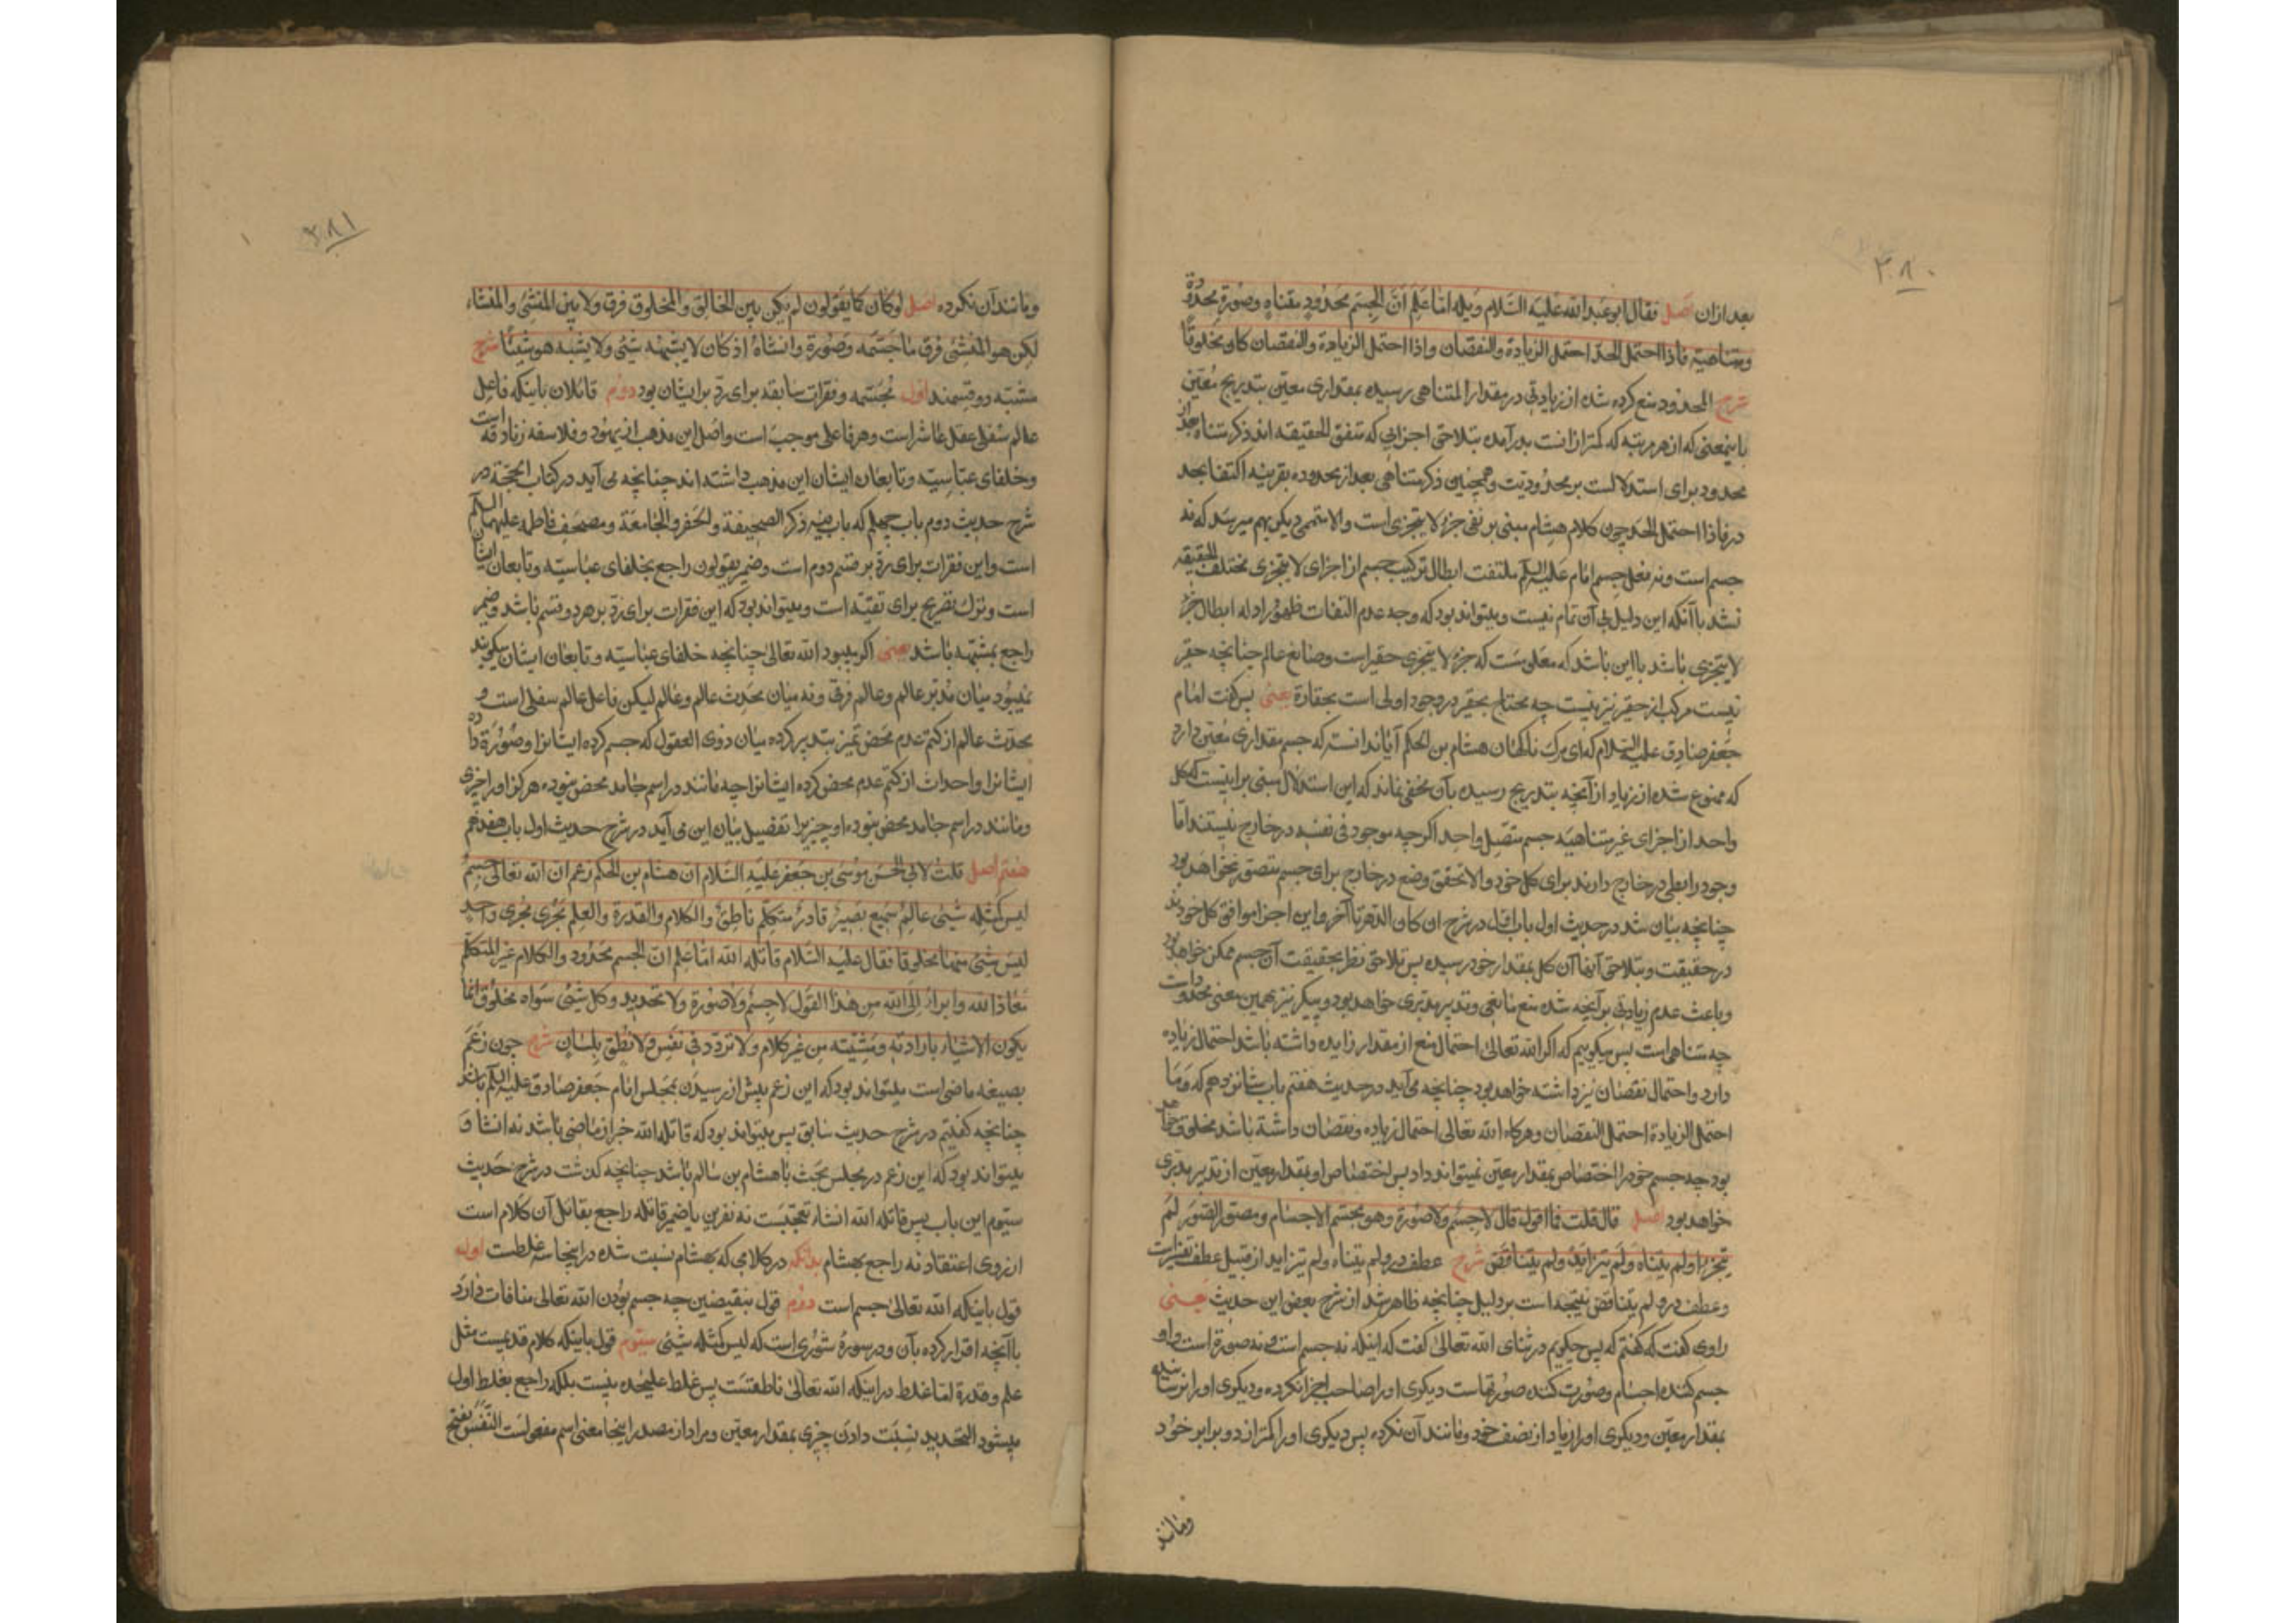 ۳۸۰
بعد ازان اصل فقال ابو عبد الله علیه السلام ویله اما علم ان الجسم محدود متناه وصورة محدودة
ومتناهیة فاذا احتمل الحد احتمل الزیادة والنقصان واذا احتمل الزیادة والنقصان کان مخلوقا
شرح المحدود منع کرده شده از زیادتی در مقدار المتناهی رسیده بمقداری معین بتدریج معین
باینمعنی که از هر مرتبه که کمتر ازانست بدر آمده بتلاحق اجزایی که متفق الحقیقه اند ذکر متناه بعد از
محدود برای استدلالست بر محدودیت وهمچنین ذکر متناهی بعد از محدوده بقرینه اکتفا بحد
در فاذا احتمل الحد چون کلام هشام مبنی بر نفی جزء لا یتجزی است والا قسمی دیگر بهم میرسد که نه
جسم است ونه فعل جسم امام علیه السلام ملتفت ابطال ترکیب جسم از اجزای لا یتجزی مختلف الحقیقه
نشد با آنکه این دلیل بی آن تمام نیست ومیتواند بود که وجه عدم التفات ظهور ادله ابطال جزء
لا یتجزی باشد یا این باشد که معلومست که جزء لا یتجزی حقیر است وصانع عالم چنانچه حقیر
نیست مرکب از حقیر نیز نیست چه محتاج بحقیر در وجود اولی است بحقارة یعنی پس گفت امام
جعفر صادق علیه السلام که ای مرگ ناگهان هشام بن الحکم آیا ندانسته که جسم مقداری معین دارد
که ممنوع شده از زیاد از آنچه بتدریج رسیده بآن مخفی نماند که این استدلال مبنی بر اینست که کل
واحد از اجزای غیر متناهیه جسم متصل واحد اگرچه موجود فی نفسه در خارج نیستند اما
وجود رابطی در خارج دارند برای کل خود والا تحقق وضع در خارج برای جسم متصور نخواهد بود
چنانچه بیان شد در حدیث اول باب اول در شرح ان کان الدهر تا آخر واین اجزا موافق کل خودند
در حقیقت وبتلاحق آنها آن کل بمقدار خود رسیده پس تلاحق نظر بحقیقت آن جسم ممکن خواهد بود
وباعث عدم زیادتی بر آنچه شده منع مانعی وتدبیر مدبری خواهد بود وپیکر نیز بهمین معنی محدود است
چه متناهی است پس میگوییم که اگر الله تعالی احتمال منع از مقدار زایده داشته باشد احتمال زیاده
دارد واحتمال نقصان نیز داشته خواهد بود چنانچه می آید در حدیث هفتم باب شانزدهم که وما
احتمل الزیادة احتمل النقصان وهرگاه الله تعالی احتمال زیاده ونقصان داشته باشد مخلوق خواهد
بود چه جسم خود را اختصاص بمقدار معین نمیتواند داد پس اختصاص او بمقدار معین از تدبیر مدبری
خواهد بود اصل قال قلت فما اقول قال لا جسم ولا صورة وهو مجسم الاجسام ومصور الصور لم
یتجزء ولم یتناه ولم یتزاید ولم یتناقص شرح عطف در ولم یتناه ولم یتزاید از قبیل عطف تفسیر است
وعطف در ولم یتناقص نتیجه است بر دلیل چنانچه ظاهر شد از شرح بعض این حدیث یعنی
راوی گفت که گفتم که پس چگویم در ثنای الله تعالی گفت که اینکه نه جسم است ونه صورة است واو
جسم کننده اجسام وصورت کننده صورتهاست دیگری او را صاحب اجزا نکرده ودیگری او را نرسانیده
بمقدار معین ودیگری او را زیاد از نصف خود ومانند آن نکرده پس دیگری او را کمتر از دو برابر خود
ومانند
۳۸۱
ومانند آن نکرده اصل لو کان کما یقولون لم یکن بین الخالق والمخلوق فرق ولا بین المنشئ والمنشاء
لکن هو المنشئ فرق ما جسمه وصورة وانشاه اذ کان لا یشبهه شیئ ولا یشبه هو شیئا شرح
مشبه دو قسمند اول مجسمه وفقرات سابقه برای رد بر ایشان بود دوم قائلان باینکه فاعل
عالم سفلی عقل عاشر است وهر فاعلی موجب است واصل این مذهب از یهود وفلاسفه زنادقه است
وخلفای عباسیه وتابعان ایشان این مذهب داشته اند چنانچه می آید در کتاب الحجة در
شرح حدیث دوم باب چهلم که باب فیه ذکر الصحیفة والجفر والجامعة ومصحف فاطمه علیها السلام
است واین فقرات برای رد بر قسم دوم است وضمیر یقولون راجع بخلفای عباسیه وتابعان ایشان
است وترک تصریح برای تقیه است ومیتواند بود که این فقرات برای رد بر هر دو قسم باشد وضمیر
راجع بمشبهه باشد یعنی اگر میبود الله تعالی چنانچه خلفای عباسیه وتابعان ایشان میگویند
نمیبود میان مدبر عالم وعالم فرقی ونه میان محدث عالم وعالم لیکن فاعل عالم سفلی است و
محدث عالم از کتم عدم محض تمیز بتدبیر کرده میان ذوی العقول که جسم کرده ایشانرا وصورة داده
ایشانرا واحداث از کتم عدم محض کرده ایشانرا چه مانند در اسم جامد محض نبوده هرگز او را چیزی
ومانند در اسم جامد محض نبوده او چیزیرا تفصیل بیان این می آید در شرح حدیث اول باب هفدهم
هفتم اصل قلت لابی الحسن موسی بن جعفر علیه السلام ان هشام بن الحکم زعم ان الله تعالی جسم
لیس کمثله شیئ عالم سمیع بصیر قادر متکلم ناطق والکلام والقدرة والعلم یجری مجری واحد
لیس شیئ منها مخلوقا فقال علیه السلام قاتله الله اما علم ان الجسم محدود والکلام غیر المتکلم
معاذ الله وابرأ الی الله من هذا القول لا جسم ولا صورة ولا تحدید وکل شیئ سواه مخلوق انما
یکون الاشیاء بارادته ومشیته من غیر کلام ولا تردد فی نفس ولا نطق بلسان شرح چون زعم
بصیغه ماضی است میتواند بود که این زعم پیش از رسیدن بمجلس امام جعفر صادق علیه السلام باشد
چنانچه گفتیم در شرح حدیث سابق پس میتواند بود که قاتله الله خبر از ماضی باشد نه انشا و
میتواند بود که این زعم در مجلس بحث با هشام بن سالم باشد چنانچه گذشت در شرح حدیث
سیوم این باب پس قاتله الله انشاء تعجبست نه نفرین یا ضمیر قاتله راجع بقائل آن کلام است
از روی اعتقاد نه راجع بهشام بدانکه در کلامی که بهشام نسبت شده در اینجا سه غلطست اول
قول باینکه الله تعالی جسم است دوم قول بنقیضین چه جسم بودن الله تعالی منافات دارد
با آنچه اقرار کرده بآن ودر سورة شوری است که لیس کمثله شیئ سیوم قول باینکه کلام قدیمست مثل
علم وقدرة اما غلط در اینکه الله تعالی ناطقست پس غلط علیحده نیست بلکه راجع بغلط اول
میشود التحدید نسبت دادن چیزی بمقدار معین ومراد از مصدر اینجا معنی اسم مفعولست النفس بفتح